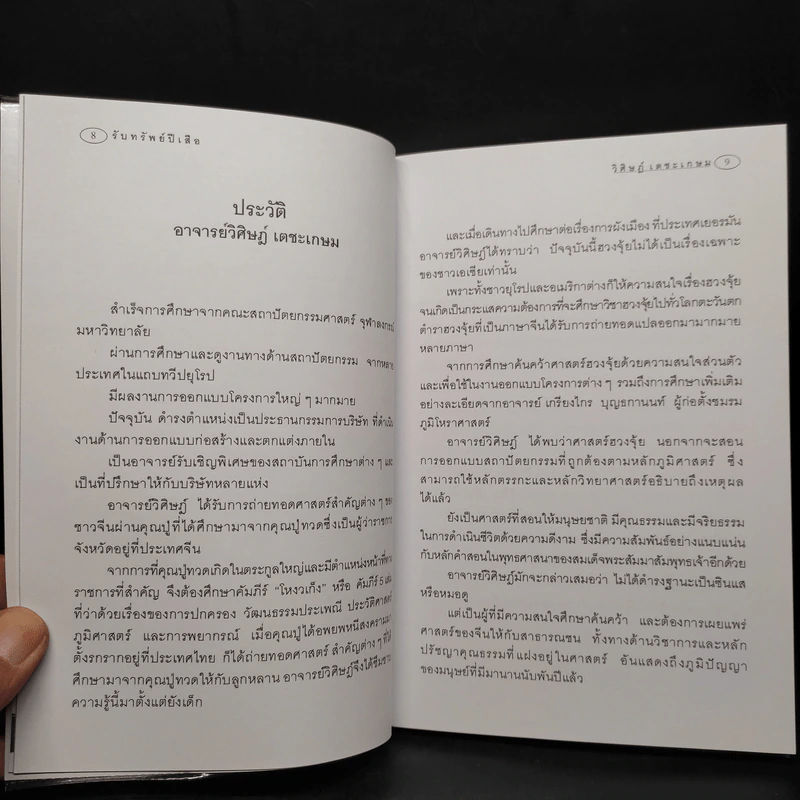 8 รับทรัพย์ปีเสือ
ประวัติ
อาจารย์วิศิษฎ์ เตชะเกษม
สำเร็จการศึกษาจากคณะสถาปัตยกรรมศาสตร์ จุฬาลงกรณ์
มหาวิทยาลัย
ผ่านการศึกษาและดูงานทางด้านสถาปัตยกรรม จากหลาย
ประเทศในแถบทวีปยุโรป
มีผลงานการออกแบบโครงการใหญ่ ๆ มากมาย
ปัจจุบัน ดำรงตำแหน่งเป็นประธานกรรมการบริษัท ที่ดำเนิน
งานด้านการออกแบบก่อสร้างและตกแต่งภายใน
เป็นอาจารย์รับเชิญพิเศษของสถาบันการศึกษาต่าง ๆ และ
เป็นที่ปรึกษาให้กับบริษัทหลายแห่ง
อาจารย์วิศิษฎ์ ได้รับการถ่ายทอดศาสตร์สำคัญต่าง ๆ ของ
ชาวจีนผ่านคุณปู่ที่ได้ศึกษามาจากคุณปู่ทวดซึ่งเป็นผู้ว่าราชการ
จังหวัดอยู่ที่ประเทศจีน
จากการที่คุณปู่ทวดเกิดในตระกูลใหญ่และมีตำแหน่งหน้าที่ทาง
ราชการที่สำคัญ จึงต้องศึกษาคัมภีร์ "โหงวเก็ง" หรือ คัมภีร์ 5 เล่ม
ที่ว่าด้วยเรื่องของการปกครอง วัฒนธรรมประเพณี ประวัติศาสตร์
ภูมิศาสตร์ และการพยากรณ์ เมื่อคุณปู่ได้อพยพหนีสงครามมา
ตั้งรกรากอยู่ที่ประเทศไทย ก็ได้ถ่ายทอดศาสตร์ สำคัญต่าง ๆ ที่ได้
ศึกษามาจากคุณปู่ทวดให้กับลูกหลาน อาจารย์วิศิษฎ์จึงได้ซึมซาบ
ความรู้นี้มาตั้งแต่ยังเด็ก
วิศิษฎ์ เตชะเกษม 9
และเมื่อเดินทางไปศึกษาต่อเรื่องการผังเมือง ที่ประเทศเยอรมัน
อาจารย์วิศิษฎ์ได้ทราบว่า ปัจจุบันนี้ฮวงจุ้ยไม่ได้เป็นเรื่องเฉพาะ
ของชาวเอเชียเท่านั้น
เพราะทั้งชาวยุโรปและอเมริกาต่างก็ให้ความสนใจเรื่องฮวงจุ้ย
จนเกิดเป็นกระแสความต้องการที่จะศึกษาวิชาฮวงจุ้ยไปทั่วโลกตะวันตก
ตำราฮวงจุ้ยที่เป็นภาษาจีนได้รับการถ่ายทอดแปลออกมามากมาย
หลายภาษา
จากการศึกษาค้นคว้าศาสตร์ฮวงจุ้ยด้วยความสนใจส่วนตัว
และเพื่อใช้ในงานออกแบบโครงการต่าง ๆ รวมถึงการศึกษาเพิ่มเติม
อย่างละเอียดจากอาจารย์ เกรียงไกร บุญธกานนท์ ผู้ก่อตั้งชมรม
ภูมิโหราศาสตร์
อาจารย์วิศิษฎ์ ได้พบว่าศาสตร์ฮวงจุ้ย นอกจากจะสอน
การออกแบบสถาปัตยกรรมที่ถูกต้องตามหลักภูมิศาสตร์ ซึ่ง
สามารถใช้หลักตรรกะและหลักวิทยาศาสตร์อธิบายถึงเหตุผล
ได้แล้ว
ยังเป็นศาสตร์ที่สอนให้มนุษยชาติ มีคุณธรรมและมีจริยธรรม
ในการดำเนินชีวิตด้วยความดีงาม ซึ่งมีความสัมพันธ์อย่างแนบแน่น
กับหลักคำสอนในพุทธศาสนาของสมเด็จพระสัมมาสัมพุทธเจ้าอีกด้วย
อาจารย์วิศิษฎ์มักจะกล่าวเสมอว่า ไม่ได้ดำรงฐานะเป็นซินแส
หรือหมอดู
แต่เป็นผู้ที่มีความสนใจศึกษาค้นคว้า และต้องการเผยแพร่
ศาสตร์ของจีนให้กับสาธารณชน ทั้งทางด้านวิชาการและหลัก
ปรัชญาคุณธรรมที่แฝงอยู่ในศาสตร์ อันแสดงถึงภูมิปัญญา
ของมนุษย์ที่มีมานานนับพันปีแล้ว